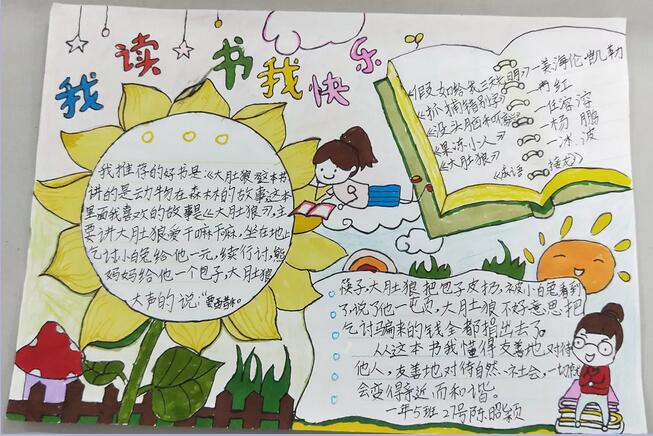 我读书我快乐
《假如给我三天光明》—美海伦凯勒
《抓捕特别》—肖红
《没头脑和不》—任溶溶
《果冻小人》—杨鹏
《大肚狼》—冰波
《成语接龙》
我推荐的好书是:《大肚狼》这本书
讲的是动物在森林的故事这本
里面我喜欢的故事是《大肚狼》,主
要讲大肚狼爱干嘛干嘛,坐在地上
乞讨小白兔给他一元,续行讨,熊
妈妈给他一个包子,大肚狼
大声的说:
筷子,大肚狼把包子皮扔,被小白兔看到
了,说了他一屯页,大肚狼不好意思把
乞讨骗来的钱全都捐出去了。
从这本书我懂得友善地对待
他人,友善地对待自然、社会,一切就
会变得亲近而和谐。
一年5班27号陈昭颖